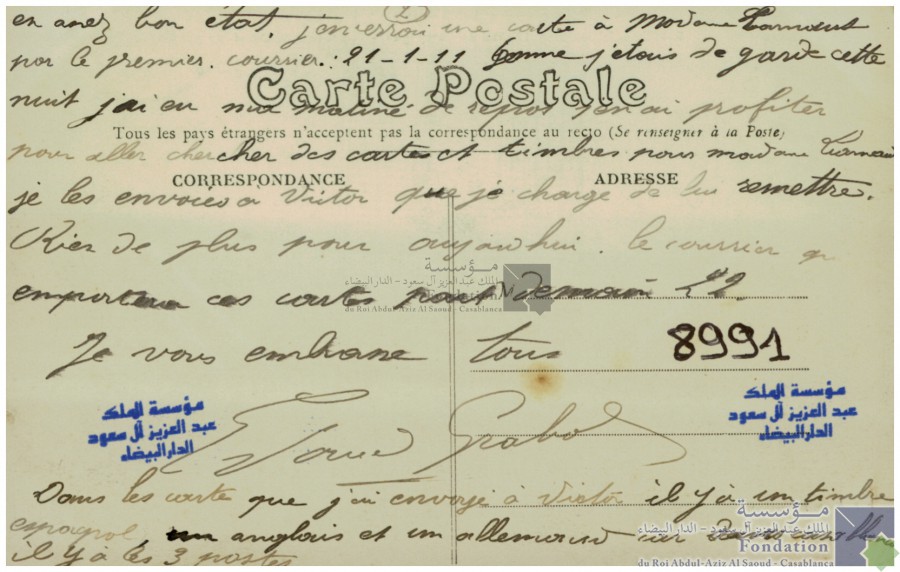 en assez bon état, j'enverrai une carte à Madame
par le premier courrier. 21-1-11 Comme j'étais de garde cette
Carte Postale
nuit j'ai eu ma matiné de repos j'en ai profiter
Tous les pays étrangers n'acceptent pas la correspondance au recto (Se renseigner à la Poste)
pour aller chercher des cartes et timbres pour madame
CORRESPONDANCE
ADRESSE
je les envoies a Victor que je charge de lui remettre.
Rien de plus pour aujourd'hui. le courrier
emportera ces cartes demain 22.
مؤسسة
الملك عبد العزيز آل سعود - الدار البيضاء
Fondation
du Roi Abdul-Aziz Al Saoud - Casablanca
Je vous embrasse tous
8991
مؤسسة الملك
عبد العزيز آل سعود
الدار البيضاء
مؤسسة الملك
عبد العزيز آل سعود
الدار البيضاء
Dans les carte que j'ai envoyé à Victor il y a un timbre
espagnol un anglais et un allemand sur
il y a les 3 postes
مؤسسة
الملك عبد العزيز آل سعود - الدار البيضاء
Fondation
du Roi Abdul-Aziz Al Saoud - Casablanca